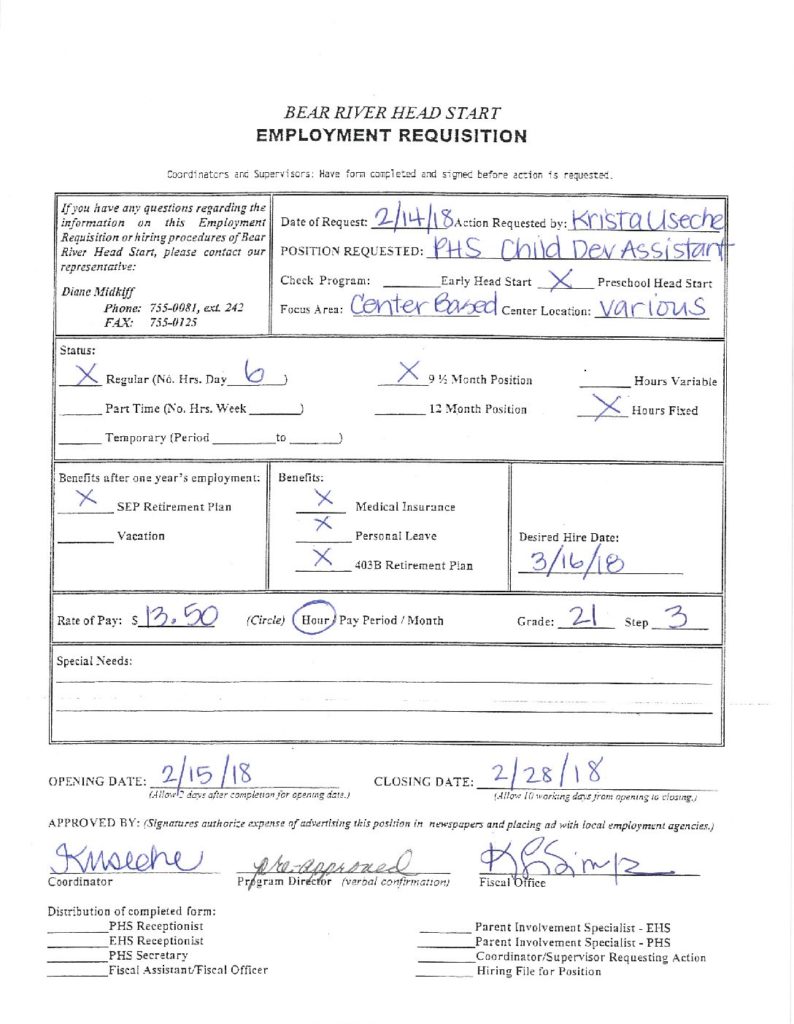 BEAR RIVER HEAD START
EMPLOYMENT REQUISITION
Coordinators and Supervisors: Have form completed and signed before action is requested.
If you have any questions regarding the
information on this Employment
Requisition or hiring procedures of Bear
River Head Start, please contact our
representative:
Diane Midkiff
Phone: 755-0081, ext. 242
FAX: 755-0125
Date of Request: 2/14/18 Action Requested by: Krista Useche
POSITION REQUESTED: PHS Child Dev Assistant
Check Program: ______ Early Head Start X Preschool Head Start
Focus Area: Center Based Center Location: various
Status:
X Regular (No. Hrs. Day 6 ) X 9 ½ Month Position ______ Hours Variable
______ Part Time (No. Hrs. Week ______) ______ 12 Month Position X Hours Fixed
______ Temporary (Period ______ to ______)
Benefits after one year's employment:
X SEP Retirement Plan
______ Vacation
Benefits:
X Medical Insurance
X Personal Leave
X 403B Retirement Plan
Desired Hire Date:
3/16/18
Rate of Pay: $ 13.50 (Circle) Hour / Pay Period / Month Grade: 21 Step 3
Special Needs:
OPENING DATE: 2/15/18 CLOSING DATE: 2/28/18
(Allow 2 days after completion for opening date.) (Allow 10 working days from opening to closing.)
APPROVED BY: (Signatures authorize expense of advertising this position in newspapers and placing ad with local employment agencies.)
KUseche pre-approved
Coordinator Program Director (verbal confirmation) Fiscal Office
Distribution of completed form:
______ PHS Receptionist
______ EHS Receptionist
______ PHS Secretary
______ Fiscal Assistant/Fiscal Officer
______ Parent Involvement Specialist - EHS
______ Parent Involvement Specialist - PHS
______ Coordinator/Supervisor Requesting Action
______ Hiring File for Position